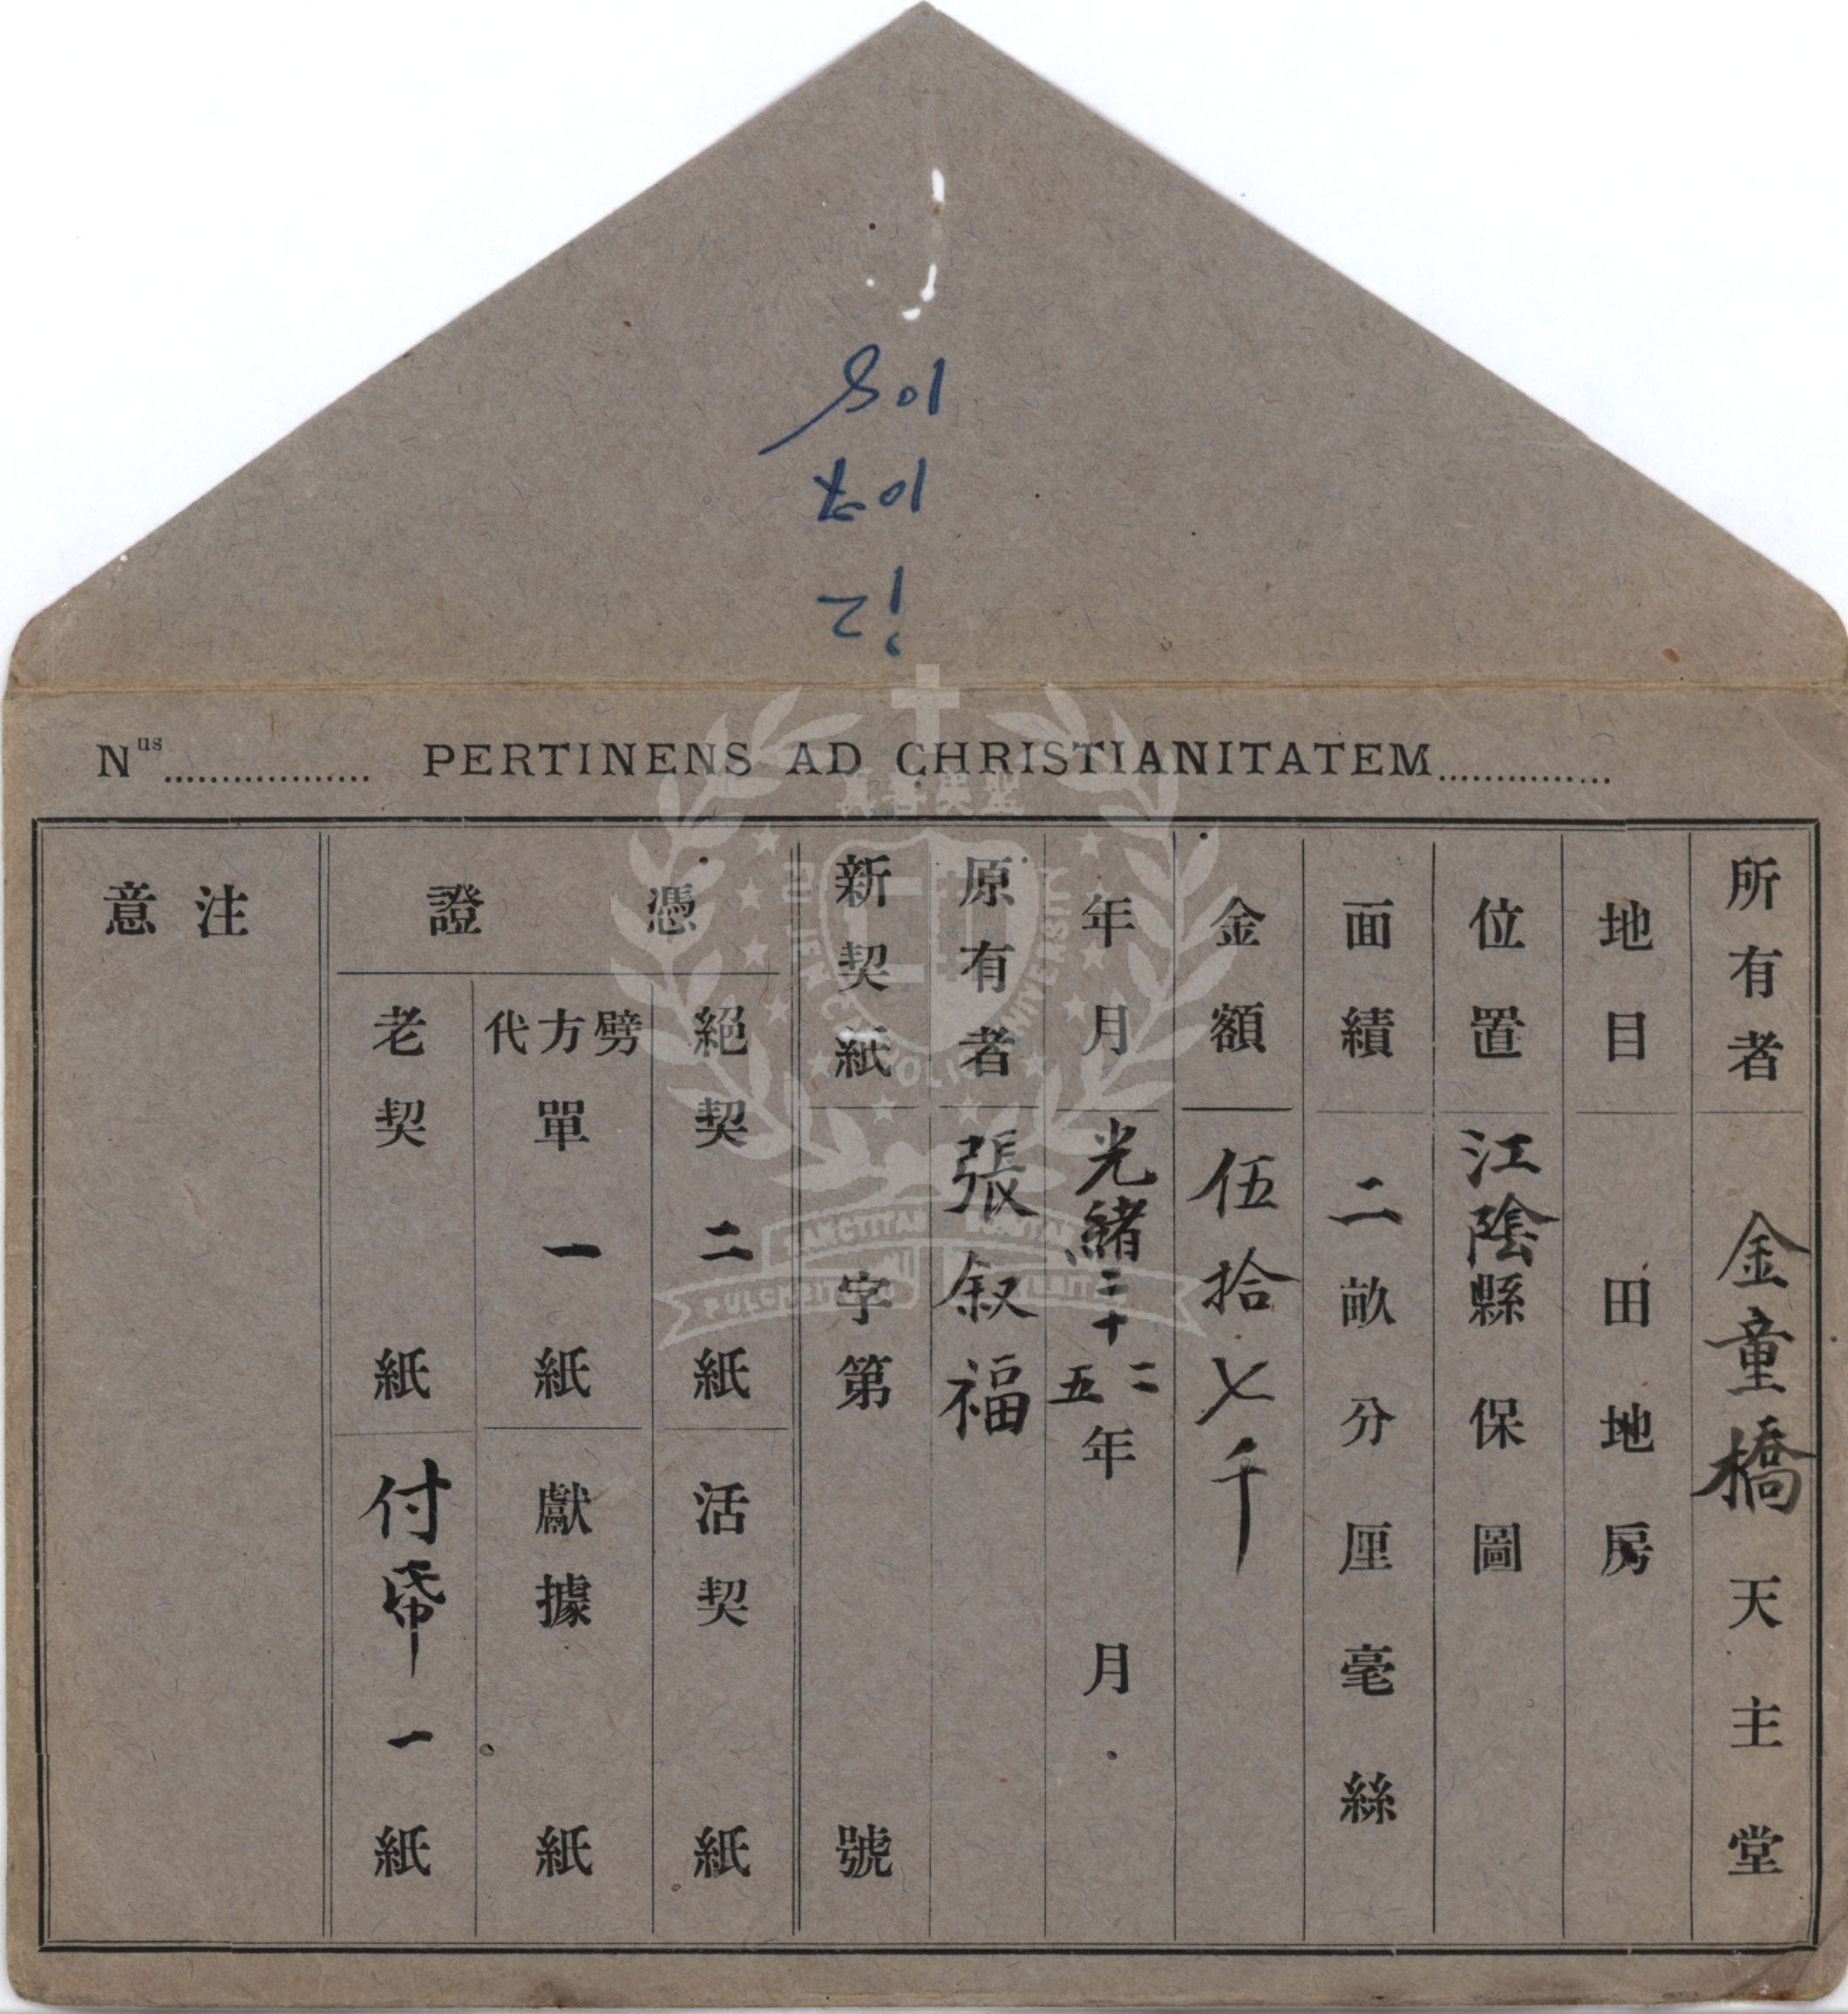 Nus.................. PERTINENS AD CHRISTIANITATEM..............
所有者 金童橋天主堂
地目 田地房
位置 江陰縣保圖
面績 二畝分厘毫絲
金額 伍拾七千
年月 光緒三十二五年月
原有者 張叙福
新契紙 字第號
憑證
絕契二紙 活契紙
劈方代單一紙 獻據紙
老契紙 付帋一紙
注意